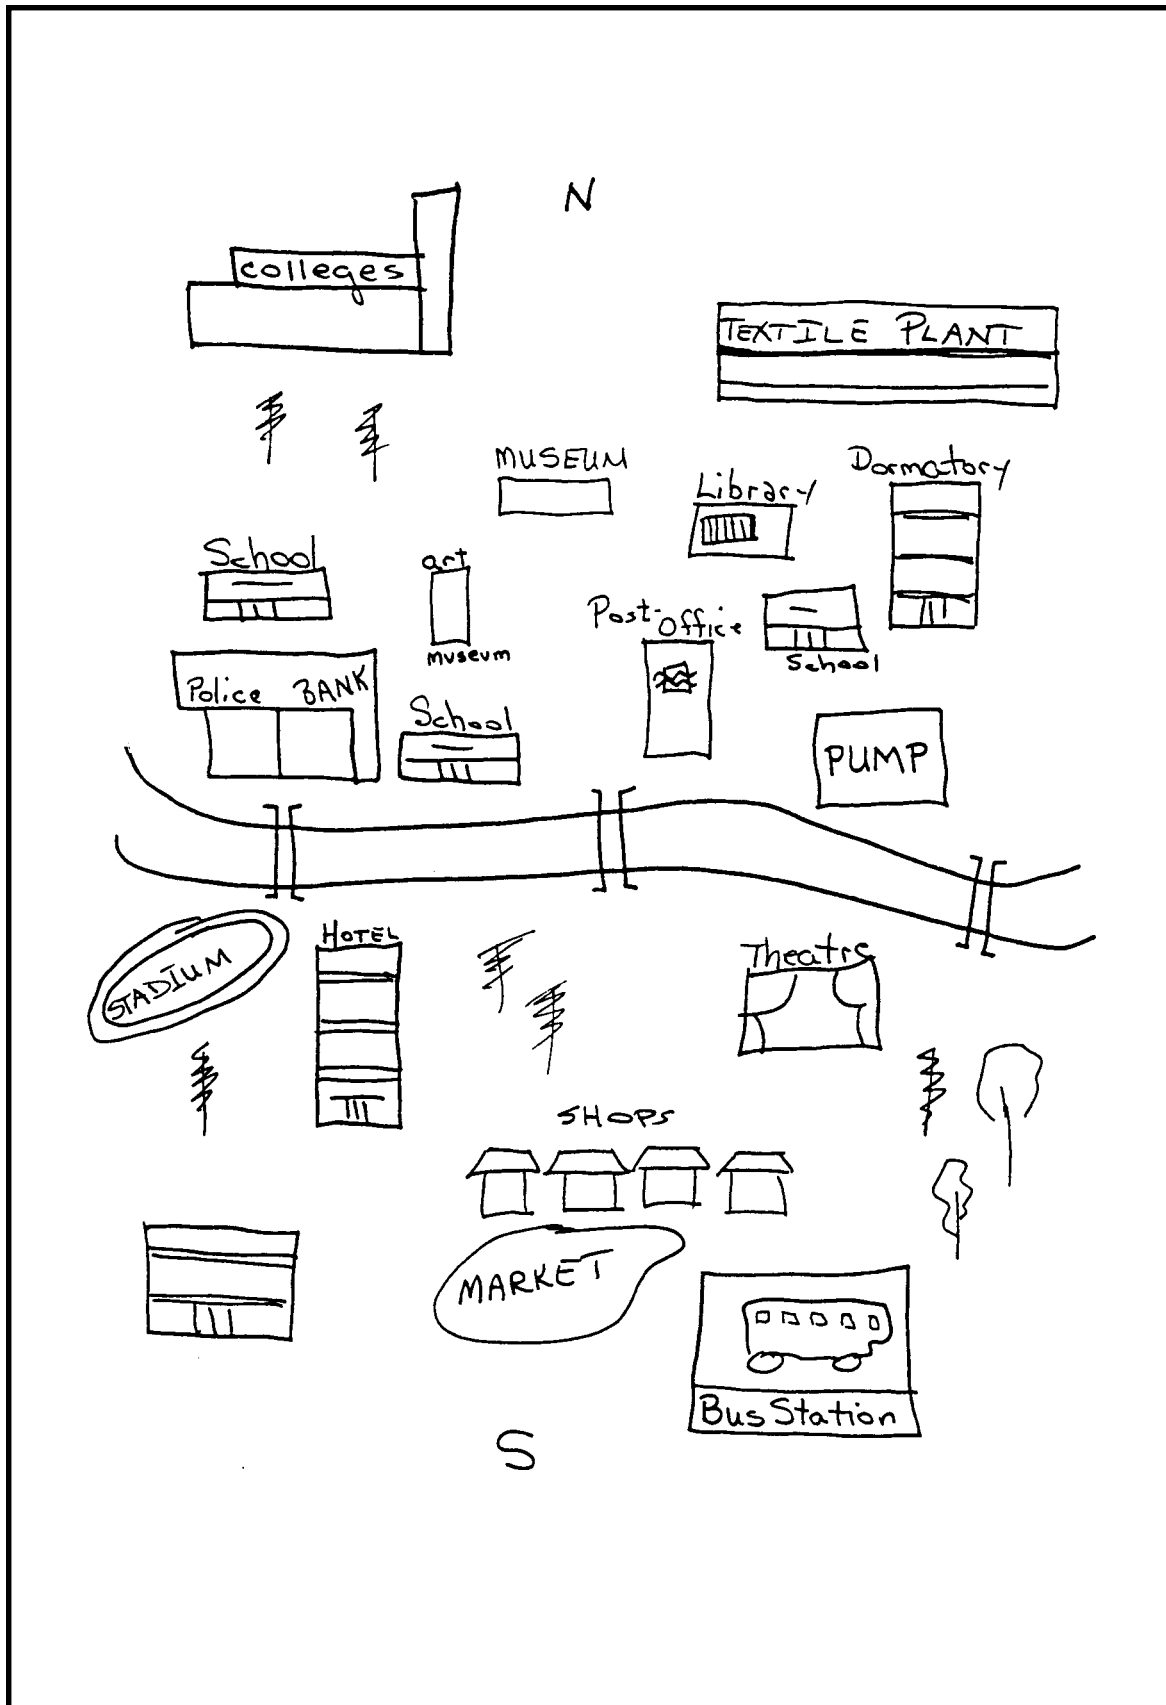 N
colleges
TEXTILE PLANT
MUSEUM
Dormatory
Library
School
art
museum
Post-Office
School
Police BANK
School
PUMP
HOTEL
STADIUM
Theatre
SHOPS
MARKET
Bus Station
S